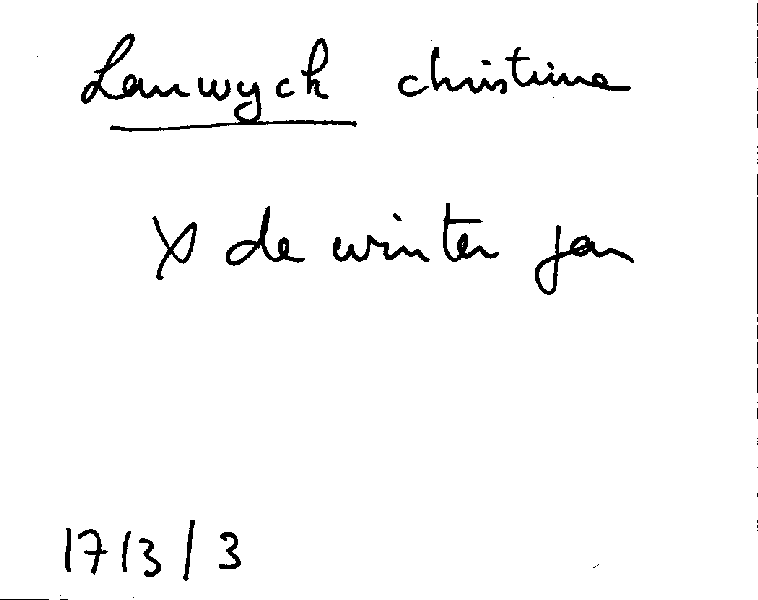 Lauwyck christine
X de winter jan
1713/3